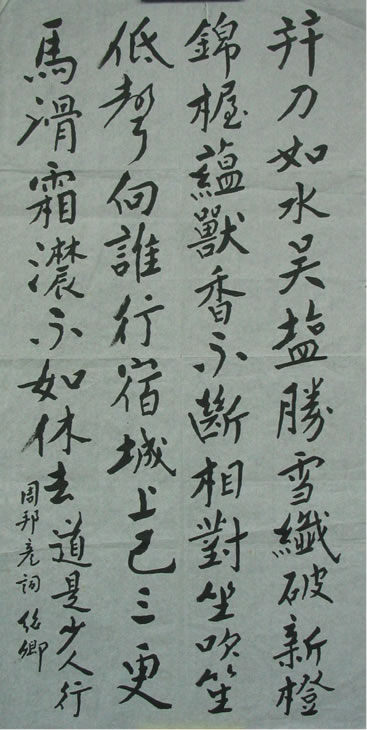 并刀如水吳塩勝雪纖破新橙
錦楃蘊獸香不斷相對坐吹笙
低聲向誰行宿城上已三更
馬滑霜濃不如休去道是少人行
周邦彦詞 卿